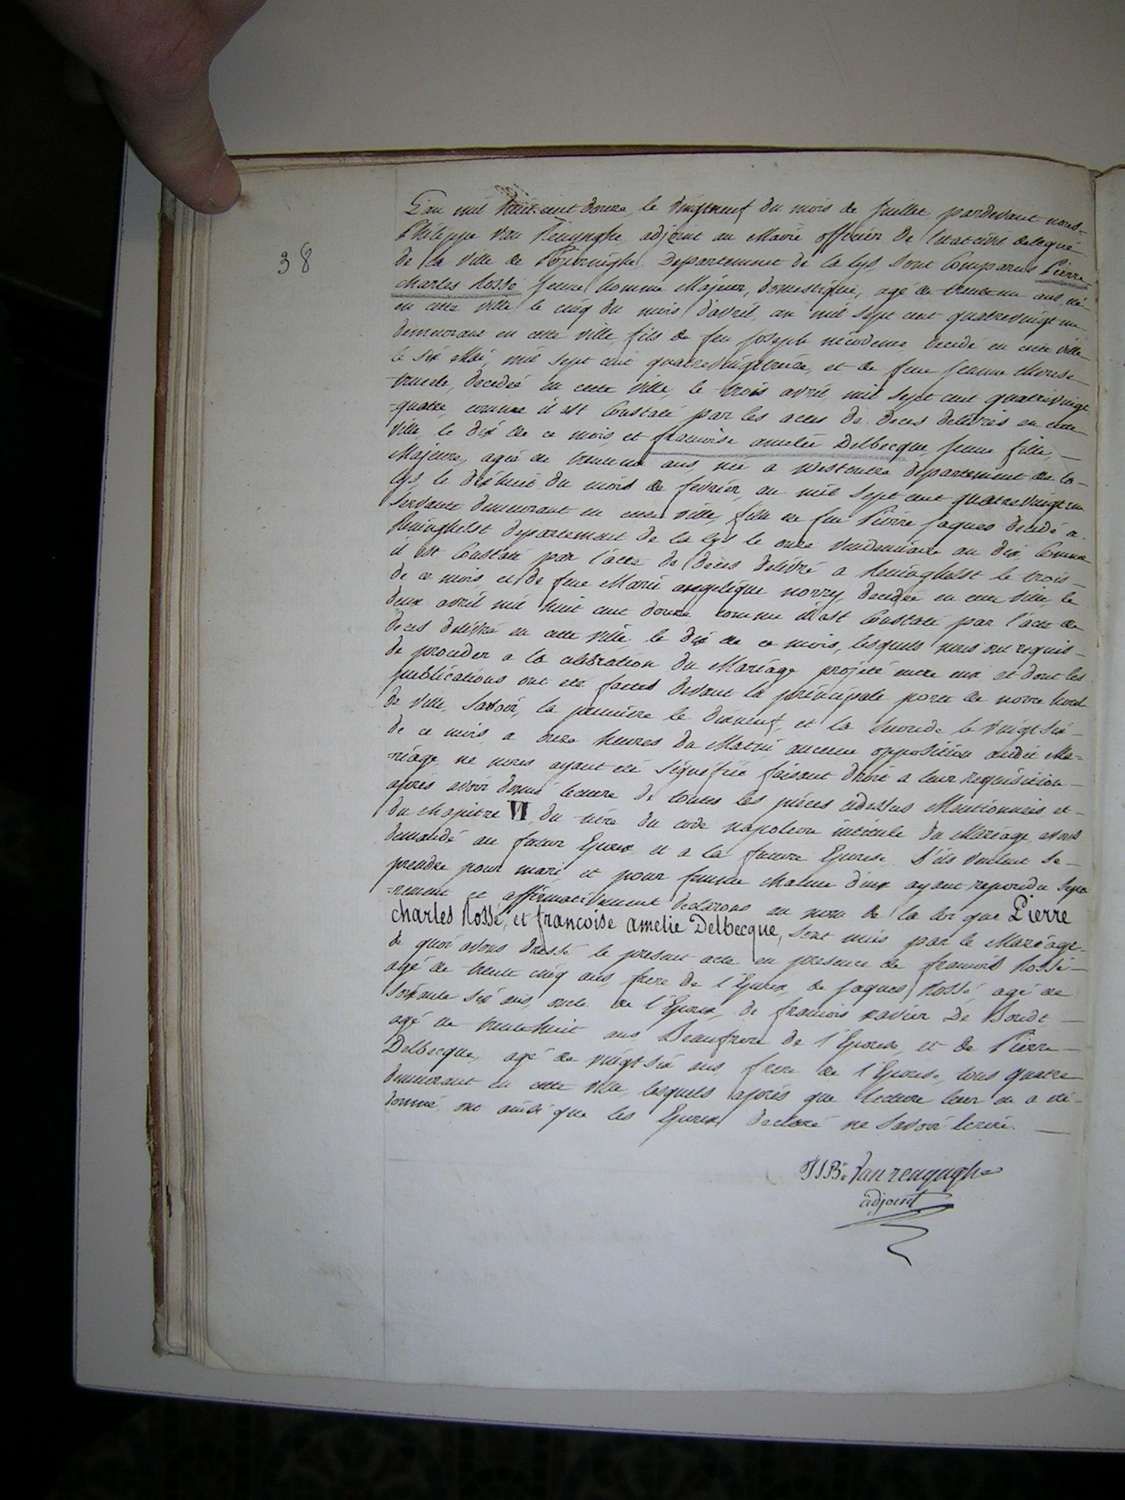 38
L'an mil huit cent douze le vingtneuf du mois de Juillet pardevant nous
Philippe Van Renynghe adjoint au Maire officier de l'etat civil delegué
de la ville de Poperinghe Departement de la Lys Sont Comparus Pierre
charles Rossé Jeune homme Majeur, domestique, agé de trente un ans né
en cette ville le cinq du mois d'avril an mil sept cent quatrevingt un
demeurant en cette ville fils de feu Joseph decedé en cette ville
le six mil sept cent quatrevingt et de feue Jeanne therese
decedée en cette ville le trois avril mil sept cent quatrevingt
quatre comme il est Constaté par les actes de deces delivrés en cette
ville le dix de ce mois et francoise amelie Delbecque Jeune fille
Majeure, agée de trente un ans, née a Westoutre département de la
Lys, le dixhuit du mois de fevrier, an mil sept cent quatrevingt un
servante demeurant en cette ville, fille de feu Pierre Jaques decedé a
Reninghelst departement de la Lys le onze Vendemiaire an dix Comme
il est Constaté par l'acte de deces delivré a Reninghelst le trois
de ce mois et de feue Marie angelique norrey decedée en cette ville le
deux avril mil huit cent douze comme il est Constaté par l'acte de
deces delivré en cette ville le dix de ce mois, lesquels nous ont requis
de proceder a la celebration du Mariage projeté entre eux et dont les
publications ont eté faites devant la principale porte de notre hotel
de ville, Savoir, la premiere le dixneuf, et la Seconde le vingt six
de ce mois a onze heures du Matin aucune opposition audit Ma-
riage ne nous ayant eté Signifiée faisant droit a leur requisition
après avoir donné lecture de toutes les pièces cidessus Mentionnées et
du chapitre VI du titre du code napoleon intitulé du Mariage, avons
demandé au futur Epoux et a la future Epouse S'ils veulent se
prendre pour mari et pour femme chacun d'eux ayant repondu Sepa-
rement et affirmativement declarons au nom de la loi que Pierre
charles Rossé, et francoise amelie Delbecque, sont unis par le Mariage
de quoi avons dressé le present acte en presence de francois Rossé
agé de trente cinq ans frere de l'Epoux, de Jaques Rossé agé de
soixante six ans, oncle de l'Epoux, de francois xavier De Boudt
agé de trentehuit ans Beaufrere de l'Epouse, et de Pierre
Delbecque, agé de vingtsix ans, frere de l'Epouse, tous quatre
demeurant en cette ville, lesquels après que lecture leur en a eté
donnée ont ainsi que les Epoux declaré ne savoir Ecrire.
Van renynghe
adjoint